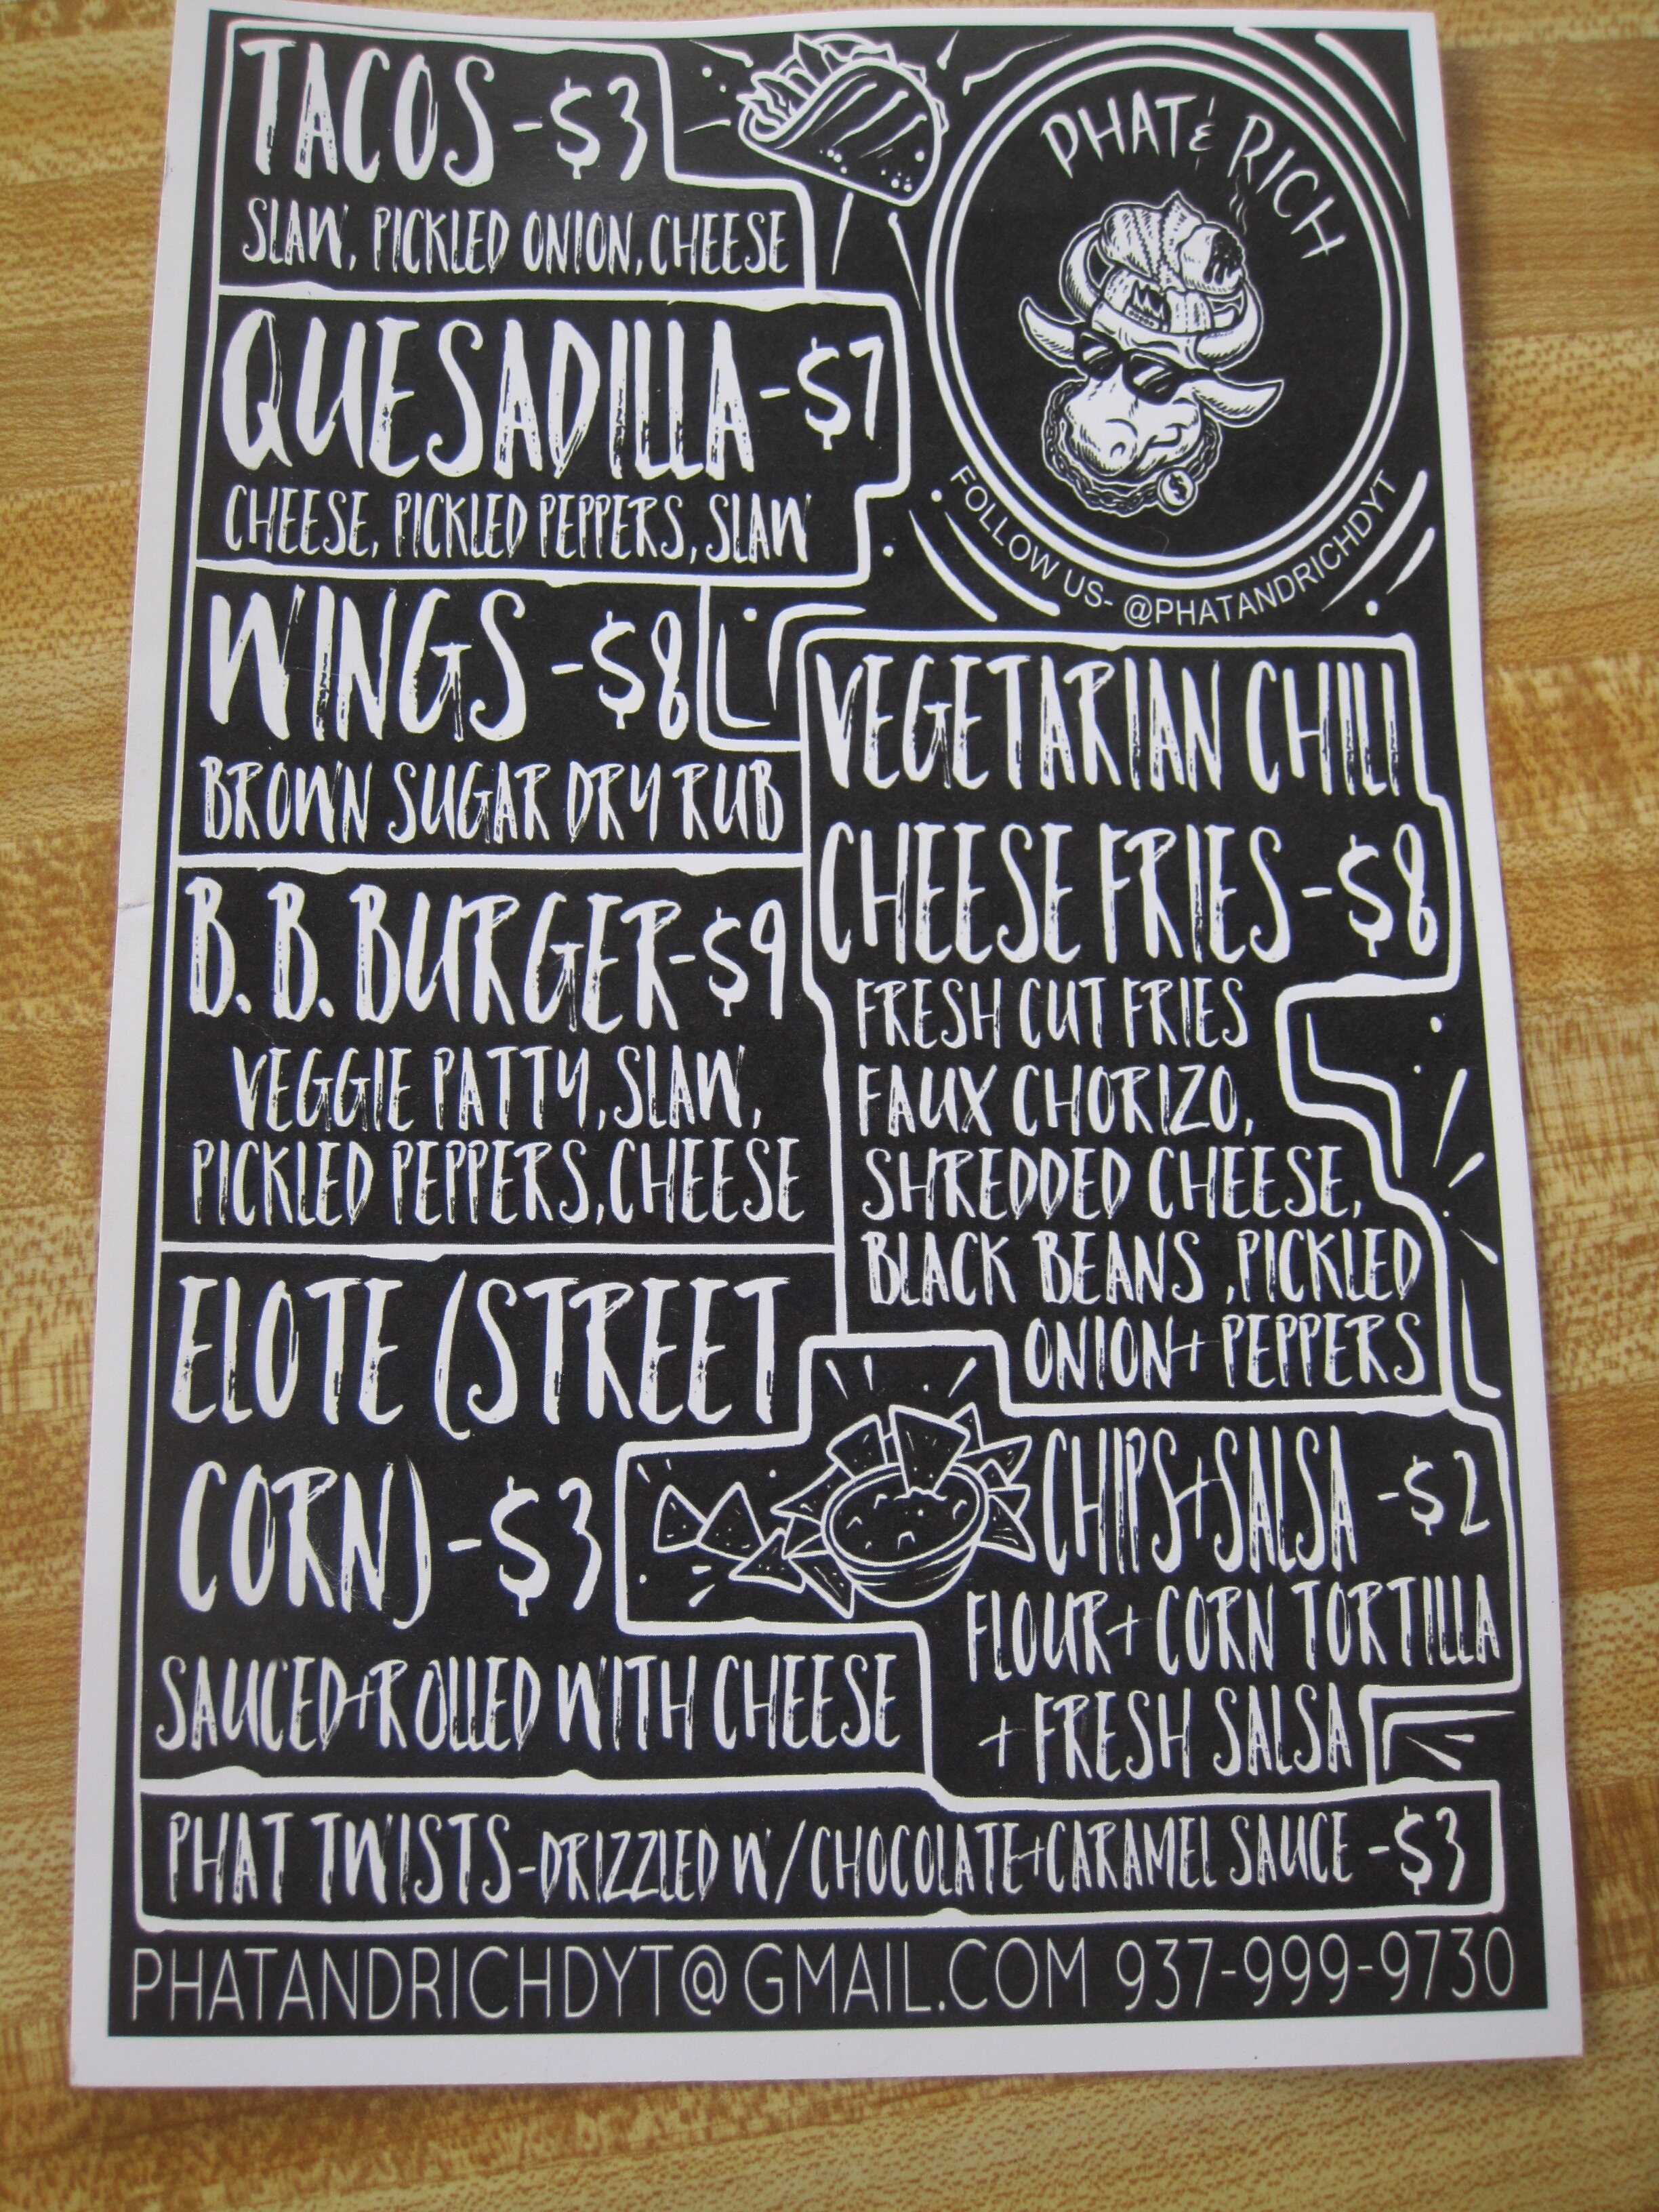 TACOS -$3
SLAW, PICKLED ONION, CHEESE
PHAT & RICH
FOLLOW US- @PHATANDRICHDYT
QUESADILLA -$7
CHEESE, PICKLED PEPPERS, SLAW
WINGS -$8
BROWN SUGAR DRY RUB
B. B. BURGER-$9
VEGGIE PATTY, SLAW,
PICKLED PEPPERS, CHEESE
VEGETARIAN CHILI
CHEESE FRIES -$8
FRESH CUT FRIES
FAUX CHORIZO,
SHREDDED CHEESE,
BLACK BEANS ,PICKLED
ONION+ PEPPERS
ELOTE (STREET
CORN) -$3
SAUCED+ROLLED WITH CHEESE
CHIPS+SALSA -$2
FLOUR+ CORN TORTILLA
+ FRESH SALSA
PHAT TWISTS-DRIZZLED W/CHOCOLATE+CARAMEL SAUCE -$3
PHATANDRICHDYT@GMAIL.COM 937-999-9730